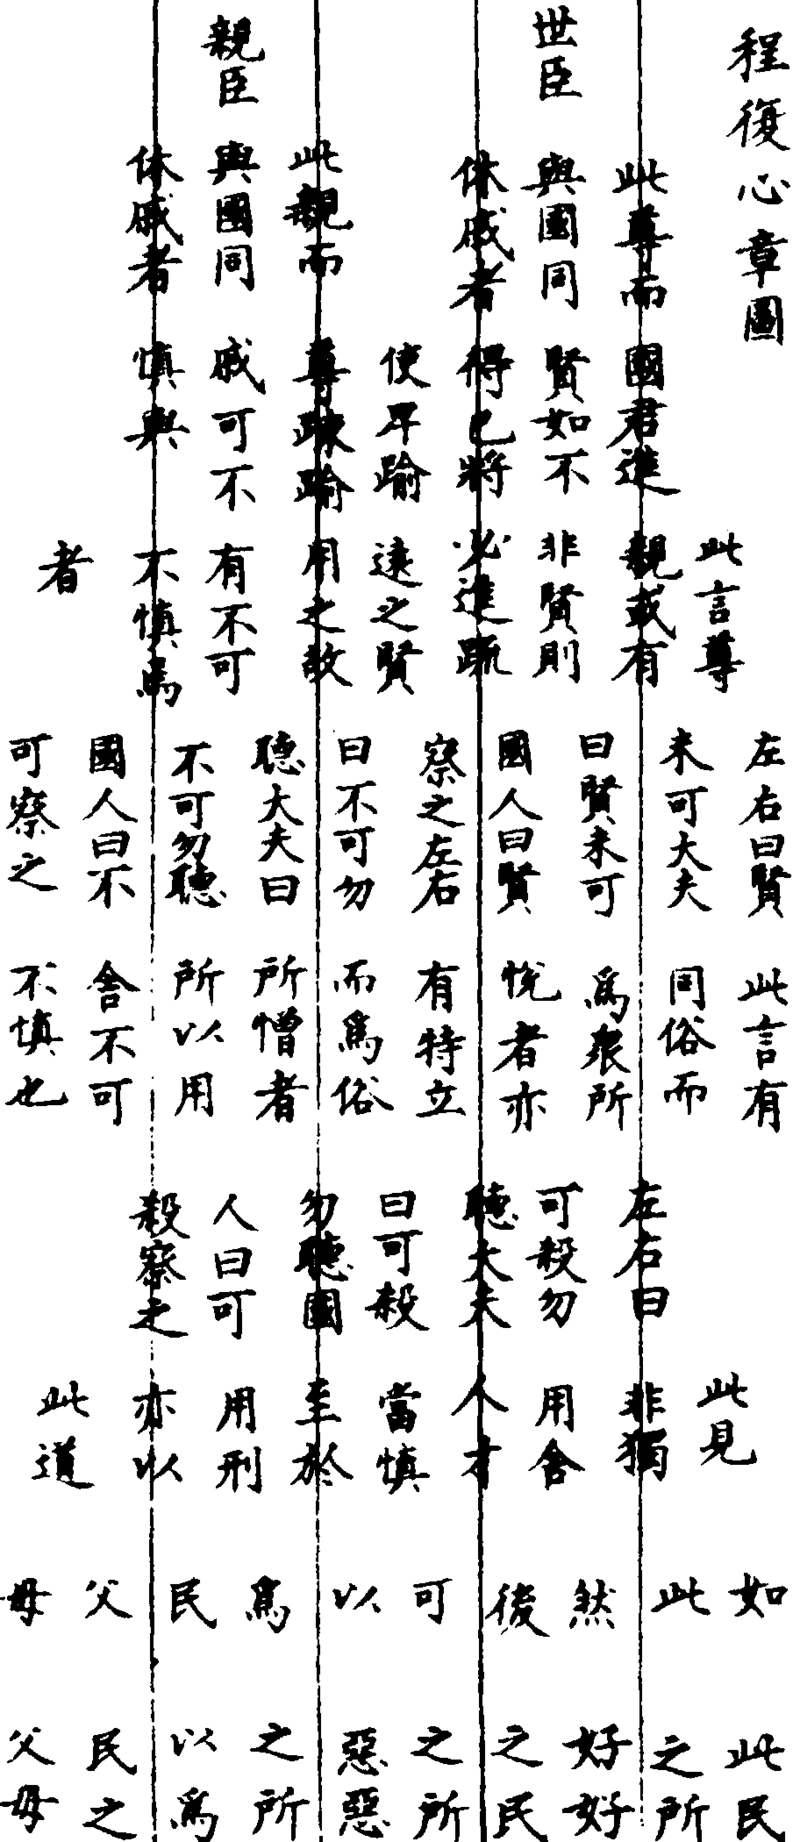 程復心章圖
世臣
親臣
此尊而
與國同
休戚者
此親而
與國同
休戚者
國君進
賢如不
得已將
使卑踰
尊踈踰
戚可不
慎與
此言尊
親或有
非賢則
必進疏
遠之賢
用之故
有不可
不慎焉
者
左右曰賢
未可大夫
曰賢未可
國人曰賢
察之左右
曰不可勿
聽大夫曰
不可勿聽
國人曰不
可察之
此言有
同俗而
爲衆所
悅者亦
有特立
而爲俗
所憎者
所以用
舍不可
不慎也
左右曰
可殺勿
聽大夫
曰可殺
勿聽國
人曰可
殺察之
此見
非獨
用舍
人才
當慎
至於
用刑
亦以
此道
如此然後可以爲民父母
此民
之所
好好
之民
之所
惡惡
之所
以爲
民之
父母